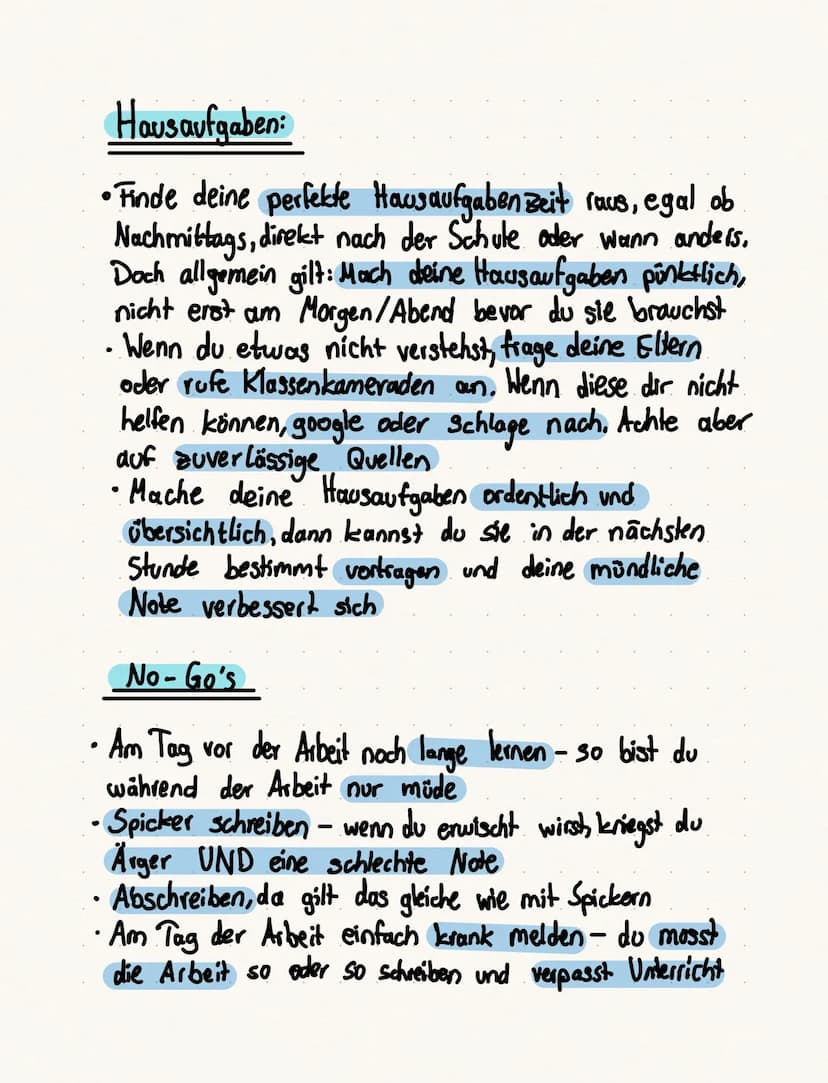 Hausaufgaben:
• Finde deine perfekte Hausaufgabenzeit raus, egal ob
Nachmittags, direkt nach der Schule oder wann anders.
Doch allgemein gilt: Mach deine Hausaufgaben pünktlich,
nicht erst am Morgen/Abend bevor du sie brauchst
• Wenn du etwas nicht verstehst, frage deine Eltern
oder rufe Klassenkameraden an. Wenn diese dir nicht
helfen können, google oder schlage nach. Achte aber
auf zuverlässige Quellen
• Mache deine Hausaufgaben ordentlich und
übersichtlich, dann kannst du sie in der nächsten
Stunde bestimmt vortragen und deine mündliche
Note verbessert sich
No-Go's
• Am Tag vor der Arbeit noch lange lernen - so bist du
während der Arbeit nur müde
• Spicker schreiben - wenn du erwischt wirst, kriegst du
Ärger UND eine schlechte Note
• Abschreiben, da gilt das gleiche wie mit Spickern
• Am Tag der Arbeit einfach krank melden - du musst
die Arbeit so oder so schreiben und verpasst Unterricht